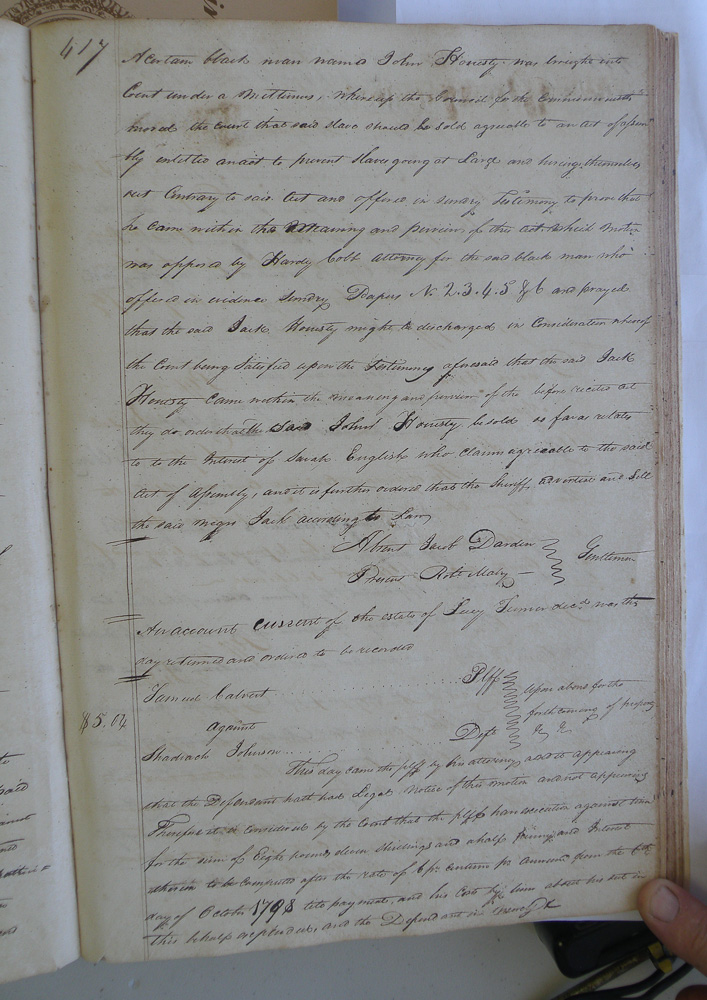 417
A certain black man named John Honesty was brought into
Court under a Mittimus, whereup the Council for the Commonwealth
moved the court that said slave should be sold agreeable to an act of assem
bly entitled an act to prevent slaves going at Large and hireing themselves
out Contrary to said Act and offered in sundry Testimony to prove that
he came within the Meaning and purview of this act which motion
was opposed by Hardy Cobb attorney for the said black man who
offered in evidence sundry Papers No. 2.3.4.5 & 6 and prayed
that the said Jack Honesty might be discharged in Consideration whereof
the Court being Satisfied upon the Testimony aforesaid that the said Jack
Honesty came within the meaning and purview of the before recited act
they do order that the said John Honesty be sold so far as relates
to to the Interest of Sarah English who claim agreeable to the said
Act of Assembly, and it is further ordered that the Sheriff advertise and Sell
the said negro Jack according to Law
Absent Jacob Darden
Gentlemen
Present Robt Mabry
An account current of the estate of Lucy Turner decd. was this
day returned and ordered to be recorded
Samuel Calvert Plff
Upon a bond for the
forthcoming of property
$5.04
against
&c &c
Shadrach Johnson Deft
This day came the plff by his attorney and it appearing
that the Defendant hath had Legal Notice of this motion and not appearing
Therefore it is considered by the Court that the plff have execution against him
for the sum of Eight pounds, eleven shillings and a half penny and Interest
thereon to be computed after the rate of 6 pr. centum pr annum from the 6th
day of October 1798 till payment, and his Costs by him about his suit in
this behalf expended, and the Defendant in mercy &c